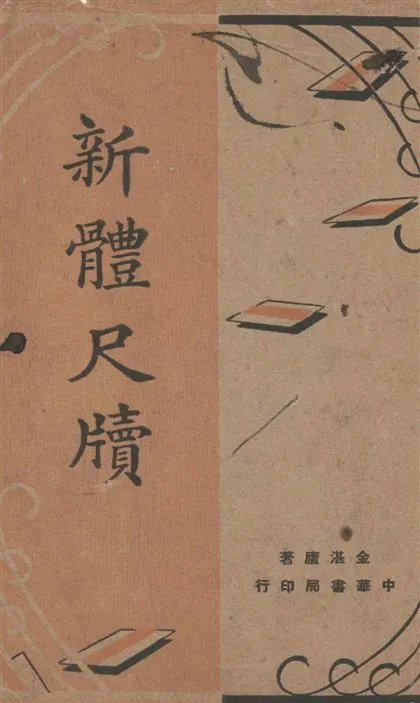 新體尺牘
金湛廬著
中華書局印行